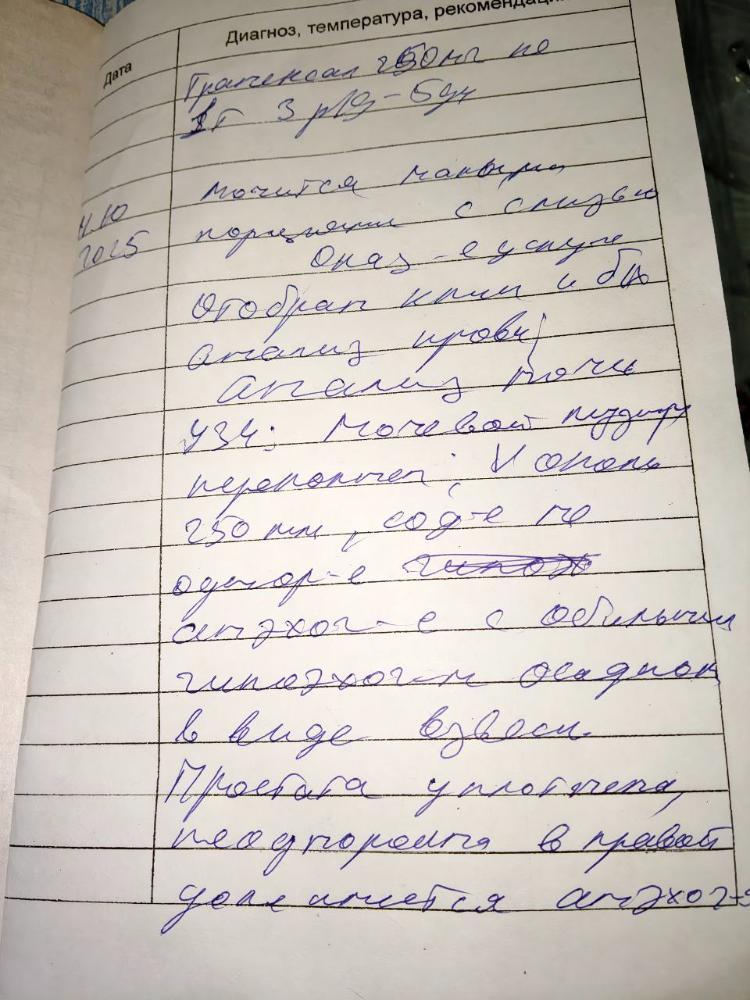 Дата
Диагноз, температура, рекомендации
Транексам 250мг по
1т 3 р/д - 5дн
11.10
2025
мочится малыми
порциями с слизью
Оказ-е услуги
Отобран клин и б/х
анализ крови;
анализ мочи
УЗИ: Мочевой пузырь
переполнен; V около
250 мл, сод-е не
однор-е
анэхог-е с обильным
гипоэхоген осадком
в виде взвеси.
Простата уплотнена,
неоднородна в правой
доле имеется анэхог-э